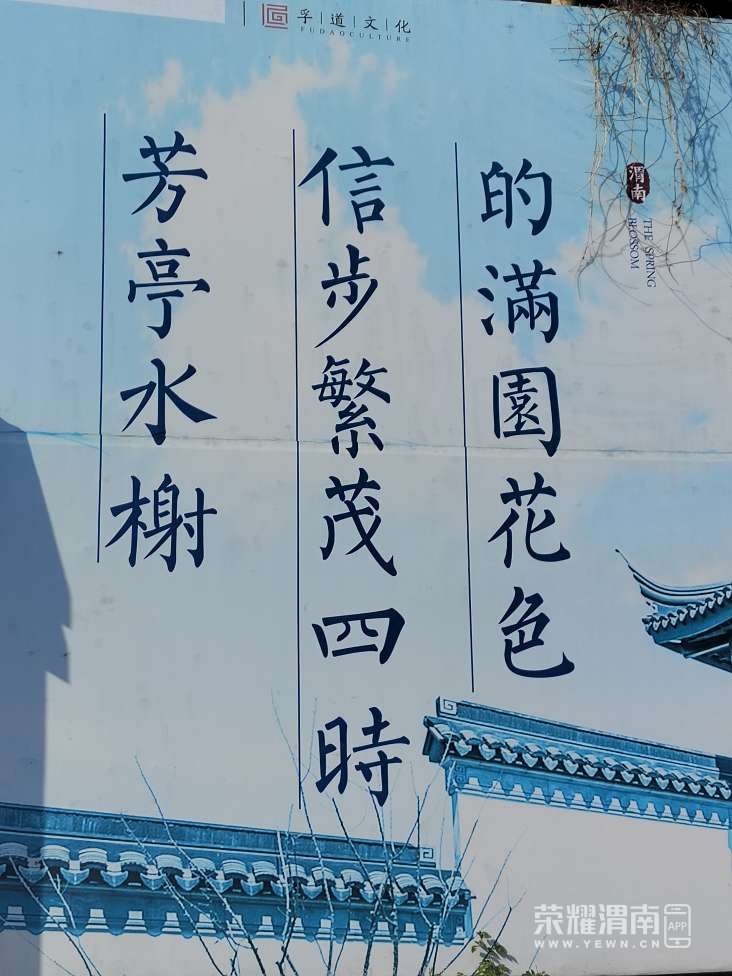 孚|道|文|化
FUDAOCULTURE
芳亭水榭
信步繁茂四時
的滿園花色
渭南
THE SPRING
BLOSSOM
荣耀渭南 APP
WWW.YEWN.CN